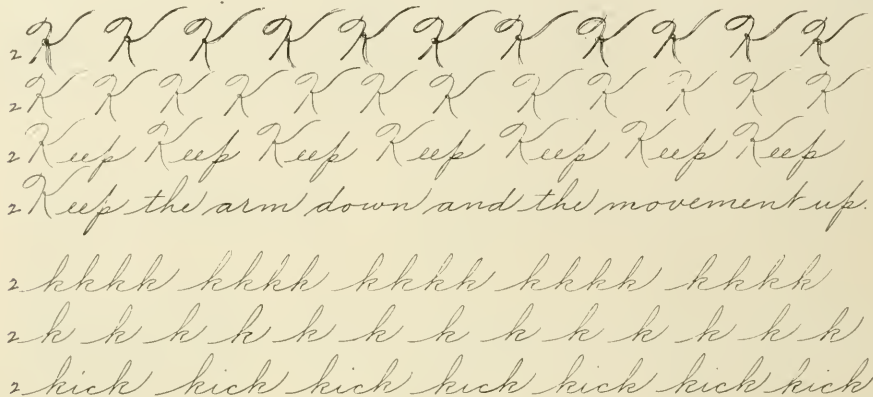 2 K K K K K K K K K K K
2 K K K K K K K K K K K K
2 Keep Keep Keep Keep Keep Keep Keep
2 Keep the arm down and the movement up.
2 kkkk kkkk kkkk kkkk kkkk
2 k k k k k k k k k k k k k
2 kick kick kick kick kick kick kick